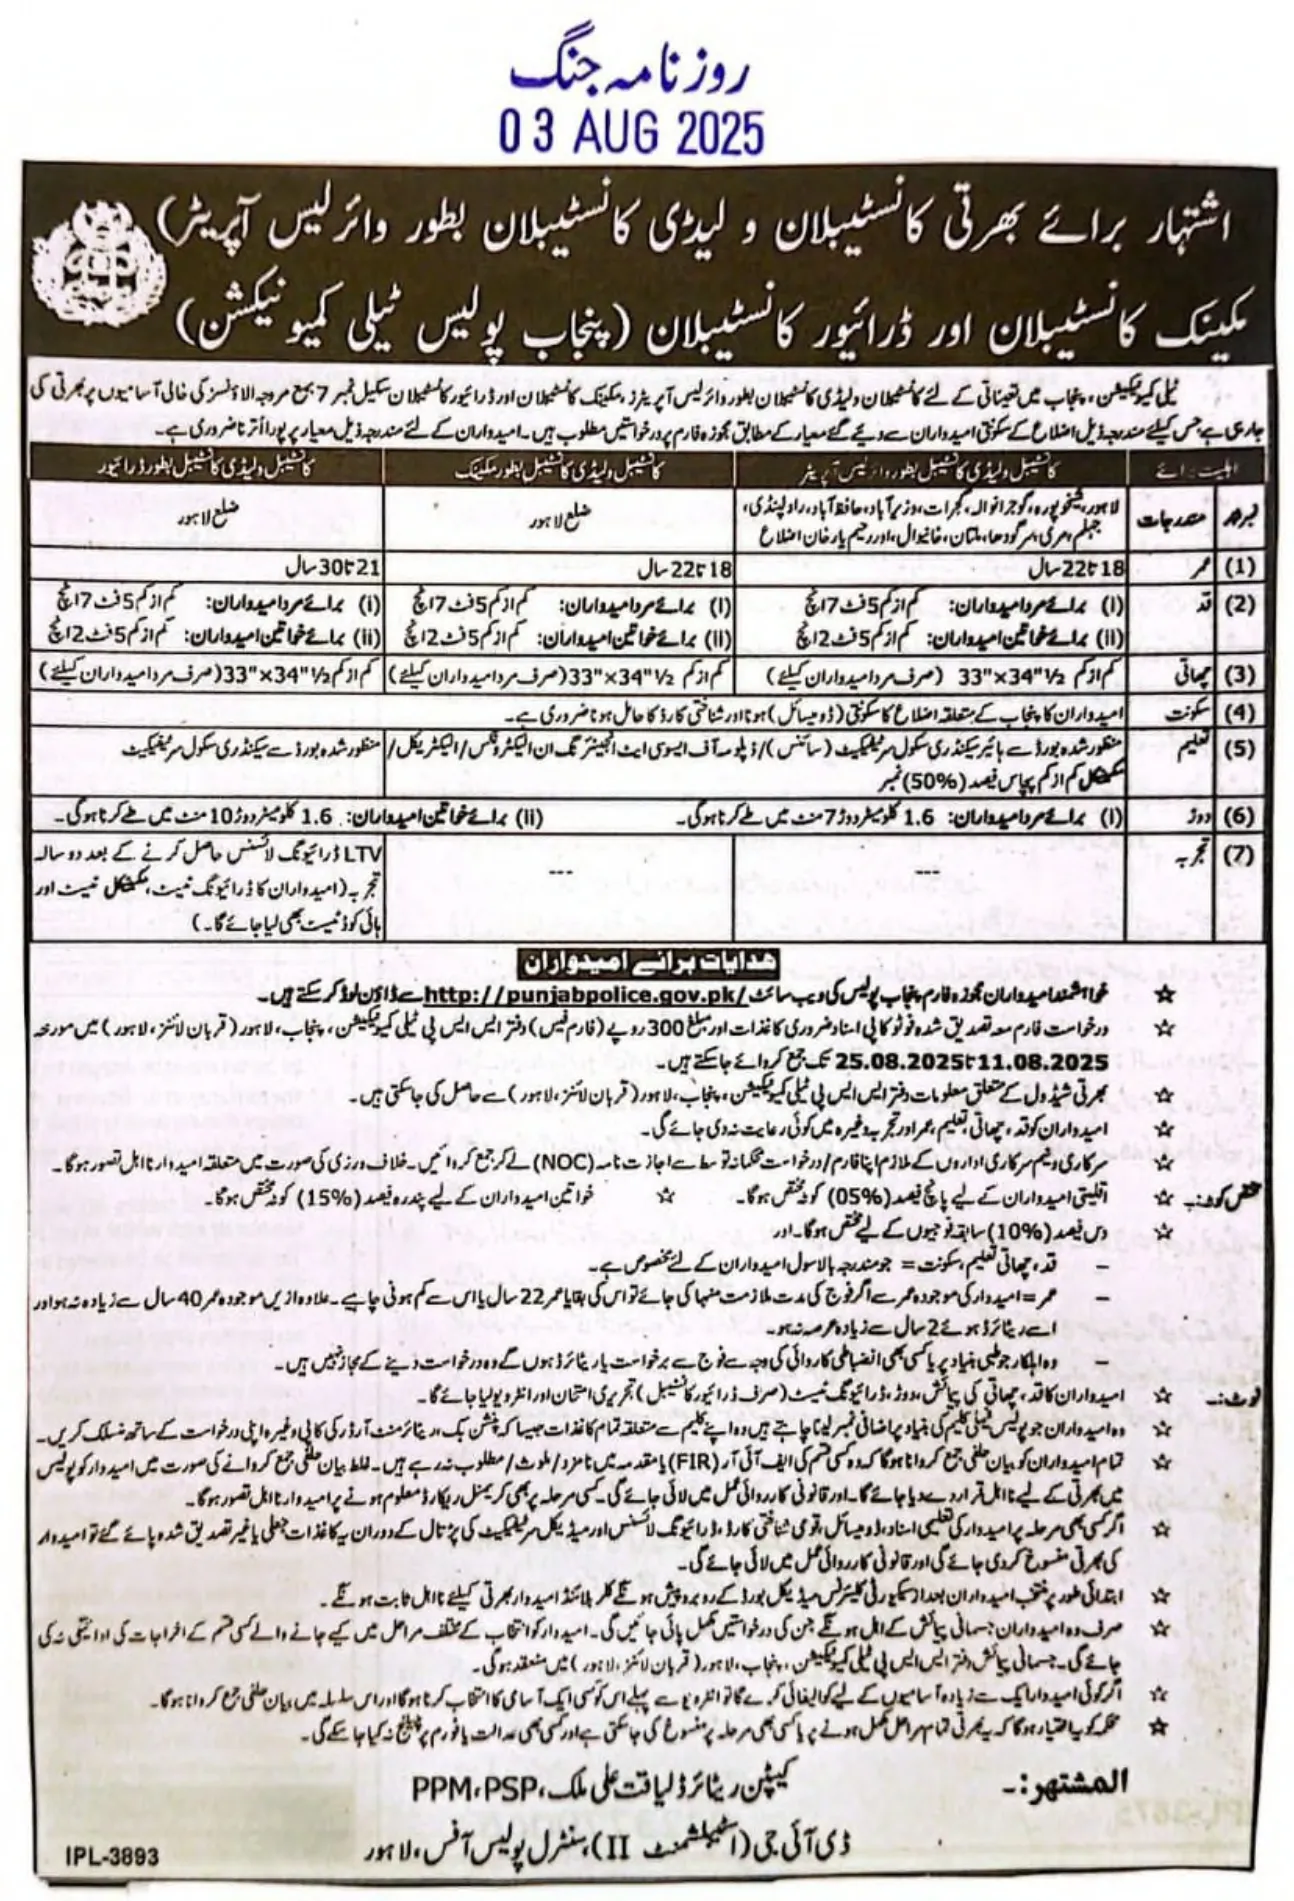 روزنامہ جنگ
03 AUG 2025
اشتہار برائے بھرتی کانسٹیبلان و لیڈی کانسٹیبلان بطور وائرلیس آپریٹر)
مکینک کانسٹیبلان اور ڈرائیور کانسٹیبلان (پنجاب پولیس ٹیلی کمیونیکشن)
ٹیلی کمیونیکیشن، پنجاب میں تعیناتی کے لئے کانسٹیبلان و لیڈی کانسٹیبلان بطور وائرلیس آپریٹرز، مکینک کانسٹیبلان اور ڈرائیور کانسٹیبلان سکیل نمبر 7 بمع مروجہ الاؤنسز کی خالی آسامیوں پر بھرتی کی
جا رہی ہے، جس کیلئے مندرجہ ذیل اضلاع کے سکونتی امیدواران سے دیئے گئے معیار کے مطابق مجوزہ فارم پر درخواستیں مطلوب ہیں۔ امیدواران کے لئے مندرجہ ذیل معیار پر پورا اُترنا ضروری ہے۔
اہلیت برائے کانسٹیبل و لیڈی کانسٹیبل بطور وائرلیس آپریٹر کانسٹیبل و لیڈی کانسٹیبل بطور مکینک کانسٹیبل و لیڈی کانسٹیبل بطور ڈرائیور
نمبر شمار مندرجات لاہور، شیخوپورہ، گوجرانوالہ، گجرات، وزیرآباد، حافظ آباد، راولپنڈی، ضلع لاہور ضلع لاہور
جہلم، مری، سرگودھا، ملتان، خانیوال، اور رحیم یار خان اضلاع
(1) عمر 18 تا 22 سال 18 تا 22 سال 21 تا 30 سال
(2) قد (i) برائے مرد امیدواران: کم از کم 5 فٹ 7 انچ (i) برائے مرد امیدواران: کم از کم 5 فٹ 7 انچ (i) برائے مرد امیدواران: کم از کم 5 فٹ 7 انچ
(ii) برائے خواتین امیدواران: کم از کم 5 فٹ 2 انچ (ii) برائے خواتین امیدواران: کم از کم 5 فٹ 2 انچ (ii) برائے خواتین امیدواران: کم از کم 5 فٹ 2 انچ
(3) چھاتی کم از کم 33"×34"½ (صرف مرد امیدواران کیلئے) کم از کم 33"×34"½ (صرف مرد امیدواران کیلئے) کم از کم 33"×34"½ (صرف مرد امیدواران کیلئے)
(4) سکونت امیدواران کا پنجاب کے متعلقہ اضلاع کا سکونتی (ڈومیسائل) ہونا اور شناختی کارڈ کا حامل ہونا ضروری ہے۔
(5) تعلیم منظور شدہ بورڈ سے ہائیر سیکنڈری سکول سرٹیفکیٹ (سائنس) / ڈپلومہ آف ایسوسی ایٹ انجینئرنگ ان الیکٹرونکس / الیکٹریکل / منظور شدہ بورڈ سے سیکنڈری سکول سرٹیفکیٹ
مکینیکل کم از کم پچاس فیصد (50%) نمبر
(6) دوڑ (i) برائے مرد امیدواران: 1.6 کلومیٹر دوڑ 7 منٹ میں طے کرنا ہوگی۔ (ii) برائے خواتین امیدواران: 1.6 کلومیٹر دوڑ 10 منٹ میں طے کرنا ہوگی۔
(7) تجربہ --- --- LTV ڈرائیونگ لائسنس حاصل کرنے کے بعد دو سالہ
تجربہ (امیدواران کا ڈرائیونگ ٹیسٹ، مکینیکل ٹیسٹ اور
ہائی کوڈ ٹیسٹ بھی لیا جائے گا۔)
ھدایات برائے امیدواران
☆ خواہشمند امیدواران مجوزہ فارم پنجاب پولیس کی ویب سائٹ http://punjabpolice.gov.pk/ سے ڈاؤن لوڈ کر سکتے ہیں۔
☆ درخواست فارم معہ تصدیق شدہ فوٹو کاپی اسناد ضروری کاغذات اور مبلغ 300 روپے (فارم فیس) دفتر ایس ایس پی ٹیلی کمیونیکیشن، پنجاب، لاہور (قربان لائنز، لاہور) میں مورخہ
11.08.2025 تا 25.08.2025 تک جمع کروائے جا سکتے ہیں۔
☆ بھرتی شیڈول کے متعلق معلومات دفتر ایس ایس پی ٹیلی کمیونیکیشن، پنجاب، لاہور (قربان لائنز، لاہور) سے حاصل کی جا سکتی ہیں۔
☆ امیدواران کو قد، چھاتی، تعلیم، عمر اور تجربہ وغیرہ میں کوئی رعایت نہ دی جائے گی۔
☆ سرکاری و نیم سرکاری اداروں کے ملازم اپنا فارم / درخواست محکمانہ توسط سے اجازت نامہ (NOC) لے کر جمع کروائیں۔ خلاف ورزی کی صورت میں متعلقہ امیدوار نا اہل تصور ہوگا۔
مختص کوٹہ:۔ ☆ اقلیتی امیدواران کے لیے پانچ فیصد (05%) کوٹہ مختص ہوگا۔ ☆ خواتین امیدواران کے لیے پندرہ فیصد (15%) کوٹہ مختص ہوگا۔
☆ دس فیصد (10%) سابقہ فوجیوں کے لیے مختص ہوگا۔ اور
- قد، چھاتی، تعلیم، سکونت = جو مندرجہ بالا سول امیدواران کے لئے مخصوص ہے۔
- عمر = امیدوار کی موجودہ عمر سے اگر فوج کی مدت ملازمت منہا کی جائے تو اس کی بقایا عمر 22 سال یا اس سے کم ہونی چاہیے۔ علاوہ ازیں موجودہ عمر 40 سال سے زیادہ نہ ہو اور
اسے ریٹائرڈ ہوئے 2 سال سے زیادہ عرصہ نہ ہو۔
- وہ اہلکار جو طبی بنیاد پر یا کسی بھی انضباطی کارروائی کی وجہ سے فوج سے برخواست یا ریٹائرڈ ہوں گے وہ درخواست دینے کے مجاز نہیں ہیں۔
نوٹ:۔ ☆ امیدواران کا قد، چھاتی کی پیمائش، دوڑ، ڈرائیونگ ٹیسٹ (صرف ڈرائیور کانسٹیبل) تحریری امتحان اور انٹرویو لیا جائے گا
☆ وہ امیدواران جو پولیس فیملی کلیم کی بنیاد پر اضافی نمبر لینا چاہتے ہیں وہ اپنے کلیم سے متعلقہ تمام کاغذات جیسا کہ پنشن بک اور ریٹائرمنٹ آرڈر کی کاپی وغیرہ اپنی درخواست کے ساتھ منسلک کریں۔
☆ تمام امیدواران کو بیان حلفی جمع کروانا ہوگا کہ وہ کسی قسم کی ایف آئی آر (FIR) یا مقدمہ میں نامزد / ملوث / مطلوب نہ رہے ہیں۔ غلط بیان حلفی جمع کروانے کی صورت میں امیدوار کو پولیس
میں بھرتی کے لیے نا اہل قرار دے دیا جائے گا۔ اور قانونی کارروائی عمل میں لائی جائے گی۔ کسی مرحلہ پر بھی کریمنل ریکارڈ معلوم ہونے پر امیدوار نا اہل تصور ہوگا۔
☆ اگر کسی بھی مرحلہ پر امیدوار کی تعلیمی اسناد، ڈومیسائل، قومی شناختی کارڈ، ڈرائیونگ لائسنس اور میڈیکل سرٹیفکیٹ کی پڑتال کے دوران یہ کاغذات جعلی یا غیر تصدیق شدہ پائے گئے تو امیدوار
کی بھرتی منسوخ کر دی جائے گی اور قانونی کارروائی عمل میں لائی جائے گی۔
☆ ابتدائی طور پر منتخب امیدواران بعد از سکیورٹی کلیئرنس میڈیکل بورڈ کے روبرو پیش ہونگے کلر بلائنڈ امیدوار بھرتی کیلئے نا اہل ثابت ہونگے۔
☆ صرف وہ امیدواران جسمانی پیمائش کے اہل ہونگے جن کی درخواستیں مکمل پائی جائیں گی۔ امیدوار کو انتخاب کے مختلف مراحل میں کیے جانے والے کسی قسم کے اخراجات کی ادائیگی نہ کی
جائے گی۔ جسمانی پیمائش دفتر ایس ایس پی ٹیلی کمیونیکیشن، پنجاب، لاہور (قربان لائنز، لاہور) میں منعقد ہوگی۔
☆ اگر کوئی امیدوار ایک سے زیادہ آسامیوں کے لیے کوالیفائی کرے گا تو انٹرویو سے پہلے اس کو کسی ایک آسامی کا انتخاب کرنا ہوگا اور اس سلسلہ میں بیان حلفی جمع کروانا ہوگا۔
☆ محکمہ کو یہ اختیار ہوگا کہ یہ بھرتی تمام مراحل مکمل ہونے پر یا کسی بھی مرحلہ پر منسوخ کی جا سکتی ہے اور کسی بھی عدالت یا فورم پر چیلنج نہ کیا جا سکے گی۔
المشتہر:۔ کیپٹن ریٹائرڈ لیاقت علی ملک، PPM،PSP
ڈی آئی جی (اسٹیبلشمنٹ II)، سنٹرل پولیس آفس، لاہور
IPL-3893